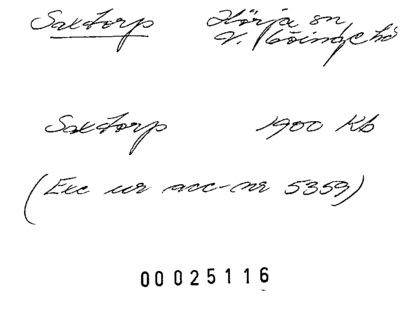 Saxtorp Hörja sn
V. Göinge hd
Saxtorp 1900 Kb
(Exc ur acc-nr 5359)
00025116